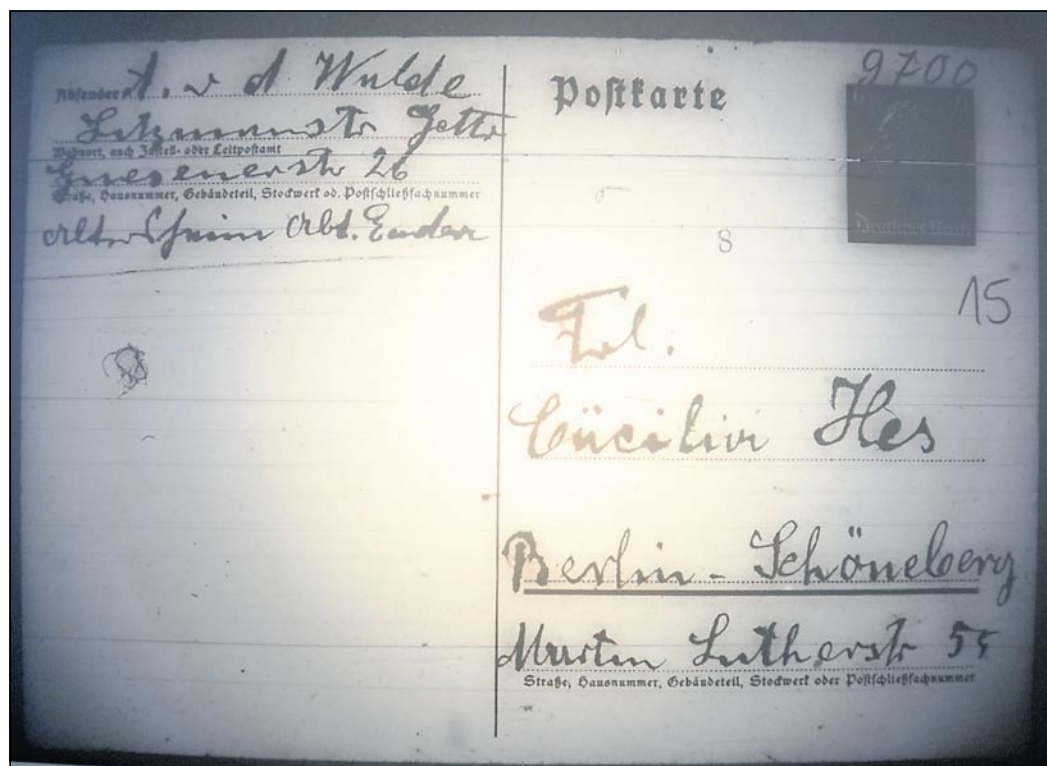 Absender: A. v d Walde
Litzmannstr Getto
Wohnort, auch Zustell- oder Leitpostamt
Gnesenerstr 26
Straße, Hausnummer, Gebäudeteil, Stockwerk od. Postschließfachnummer
Altersheim Abt.
Postkarte
9700
6
Deutsches Reich
8
15
Frl.
Cäcilia Hes
Berlin - Schöneberg
Martin Lutherstr 55
Straße, Hausnummer, Gebäudeteil, Stockwerk oder Postschließfachnummer